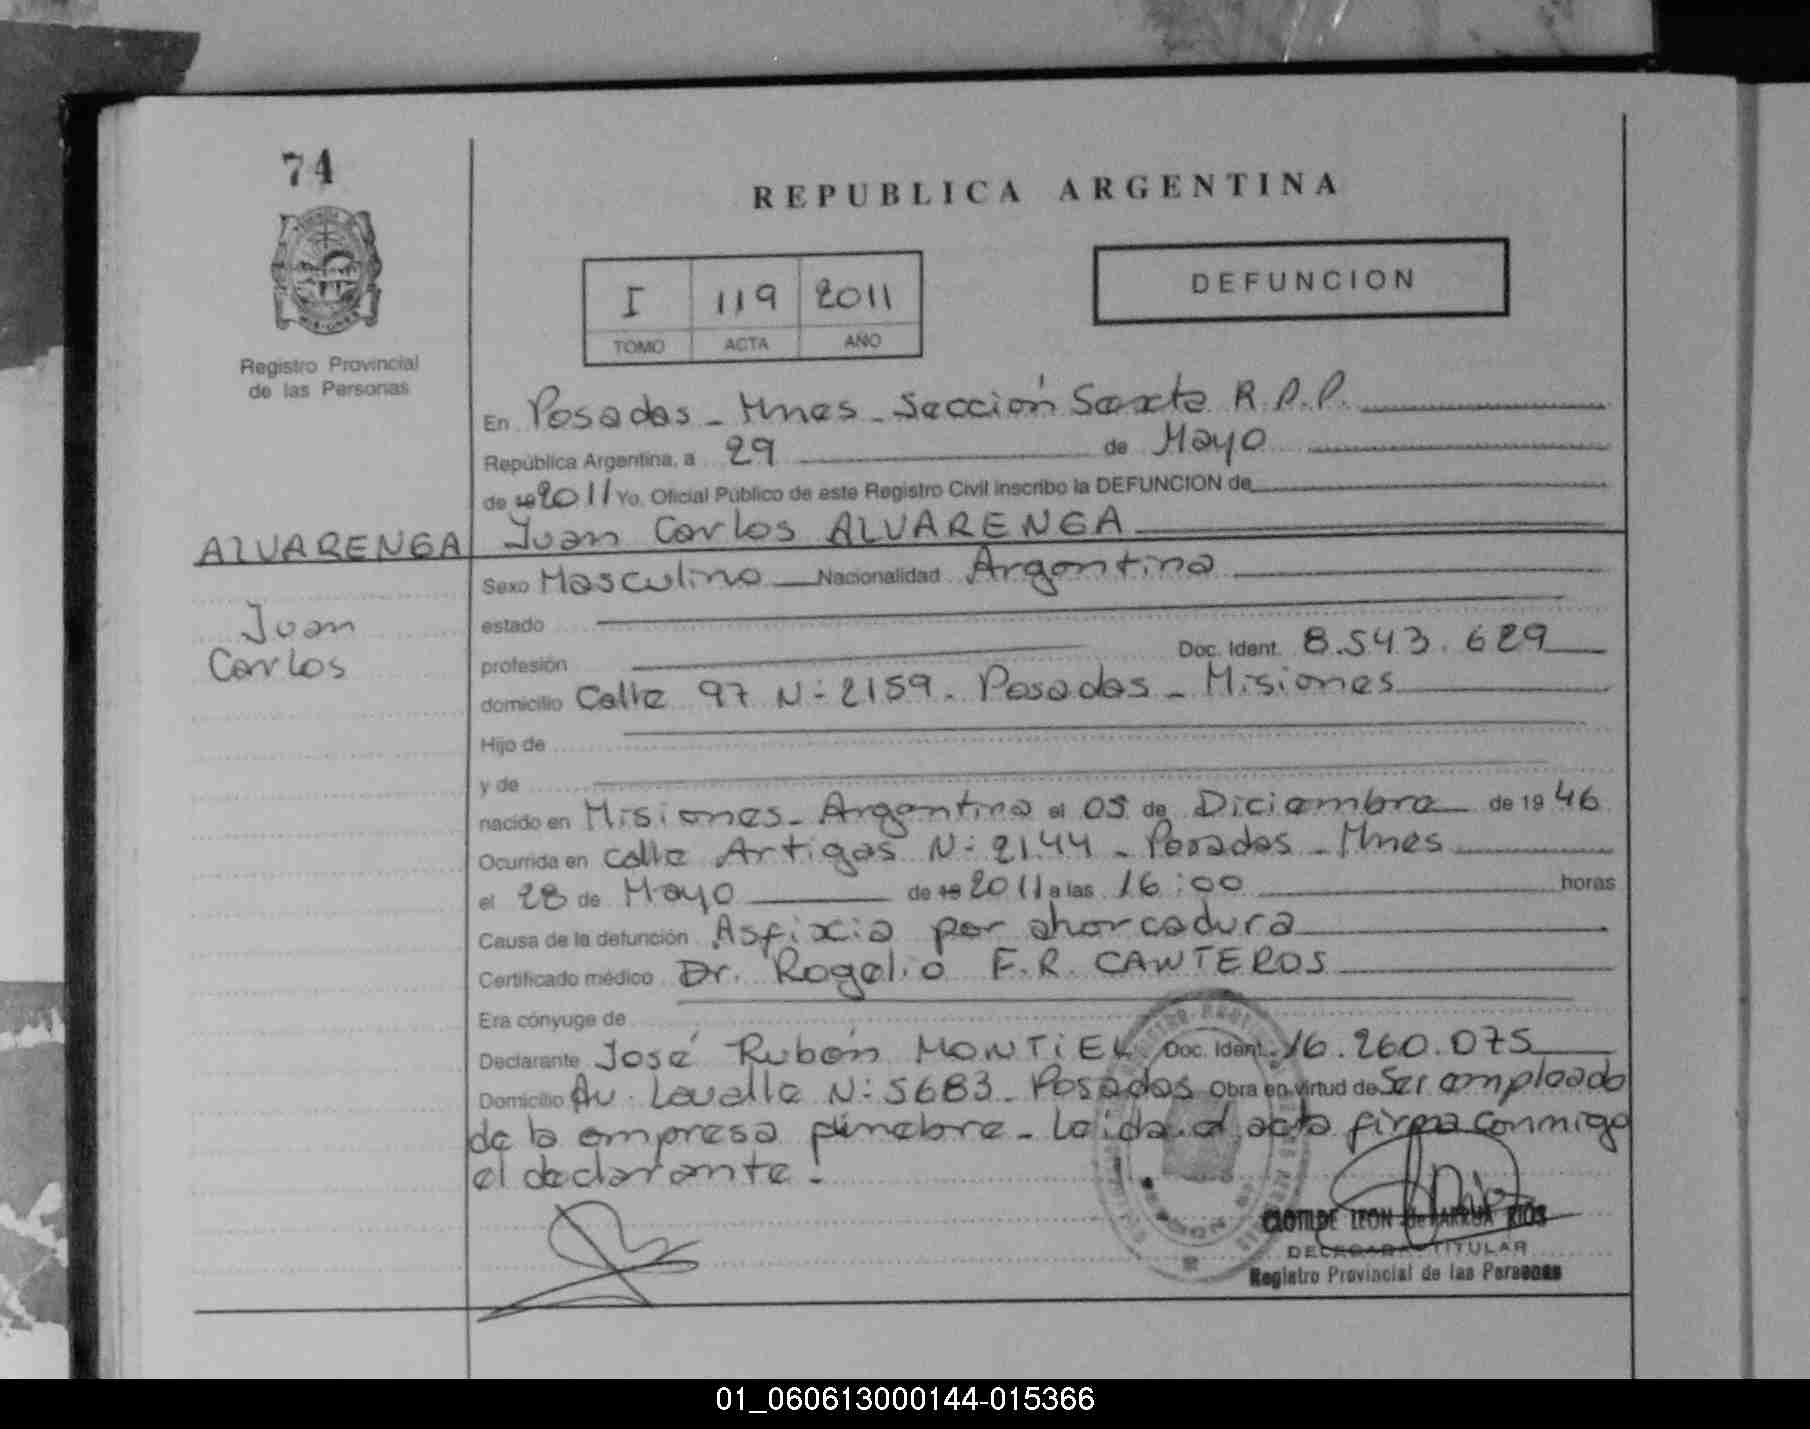 74
REPUBLICA ARGENTINA
I 119 2011
TOMO ACTA AÑO
DEFUNCION
Registro Provincial
de las Personas
En Posadas - Mnes - Sección Sexta R.P.P.
República Argentina, a 29 de Mayo
de 19 2011 Yo, Oficial Público de este Registro Civil inscribo la DEFUNCION de
ALVARENGA Juan Carlos ALVARENGA
Sexo Masculino Nacionalidad Argentina
Juan
Carlos
estado
profesión Doc. Ident. 8.543.629
domicilio Calle 97 N: 2159 - Posadas - Misiones
Hijo de
y de
nacido en Misiones - Argentina el 05 de Diciembre de 19 46
Ocurrida en calle Artigas N: 2144 - Posadas - Mnes
el 28 de Mayo de 19 2011 a las 16:00 horas
Causa de la defunción Asfixia por ahorcadura
Certificado médico Dr. Rogelio F.R. CANTEROS
Era cónyuge de
Declarante José Rubén MONTIEL Doc. Ident. 16.260.075
Domicilio Av. Lavalle N: 5683 - Posadas Obra en virtud de Ser empleado
de la empresa fúnebre - Leida el acta firma conmigo
el declarante.
CLOTILDE LEON de BARRUA RIOS
DELEGADA TITULAR
Registro Provincial de las Personas
01_060613000144-015366